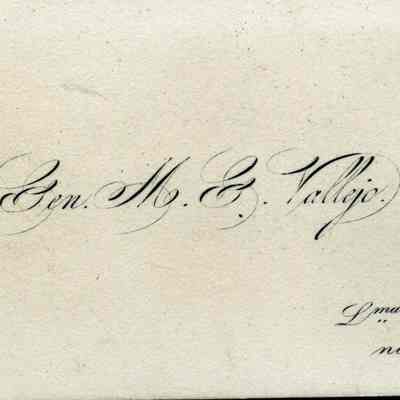 Gen. M. G. Vallejo.